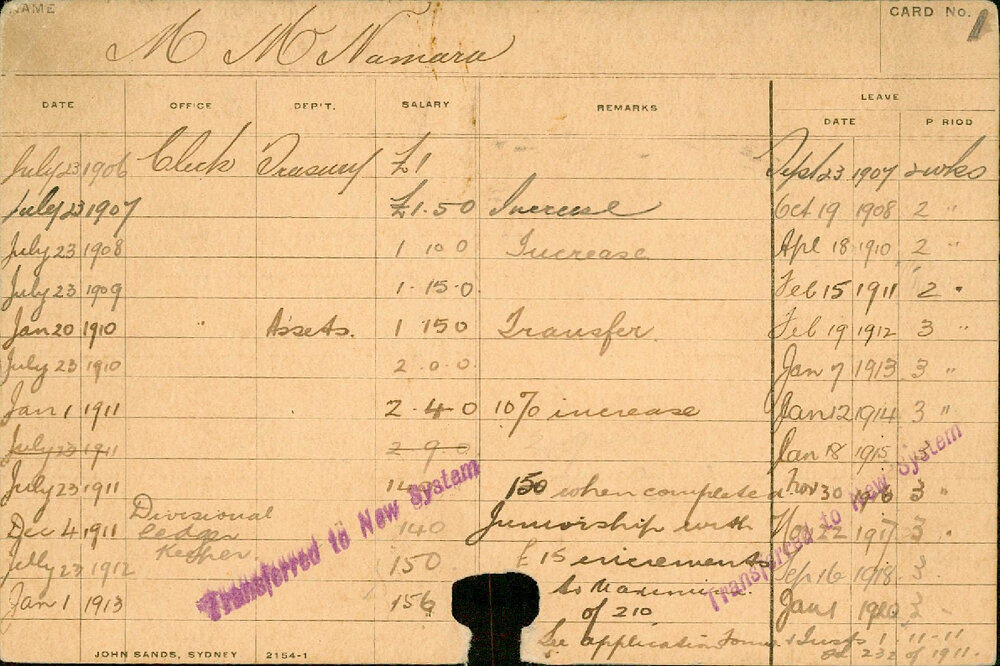 NAME
CARD No. 1
M McNamara
LEAVE
DATE OFFICE DEP'T. SALARY REMARKS DATE P RIOD
July 23 1906 Clerk Treasury £1 Sept 23 1907 2 wks
July 23 1907 £1.5 0 Increase Oct 19 1908 2 "
July 23 1908 1 10 0 Increase Apl 18 1910 2 "
July 23 1909 1.15.0 Feb 15 1911 2 "
Jan 20 1910 " Assets. 1 15 0 Transfer Feb 19 1912 3 "
July 23 1910 2.0.0 Jan 7 1913 3 "
Jan 1 1911 2.4.0 10% increase Jan 12 1914 3 "
July 23 1911 2 9 0 Jan 18 1915
July 23 1911 150 when completed Nov 30 3 "
Dec 4 1911 Divisional 140 Juniorship with 1917 3 "
Ledger
July 23 1912 Keeper. 150 £15 increments Sep 16 1918 3
Jan 1 1913 156 to Maximum Jan 1 1920 3
of 210
See application Form & Insts 1-11-11
232 of 1911.
Transferred to New System
Transferred to New System
JOHN SANDS, SYDNEY 2154-1